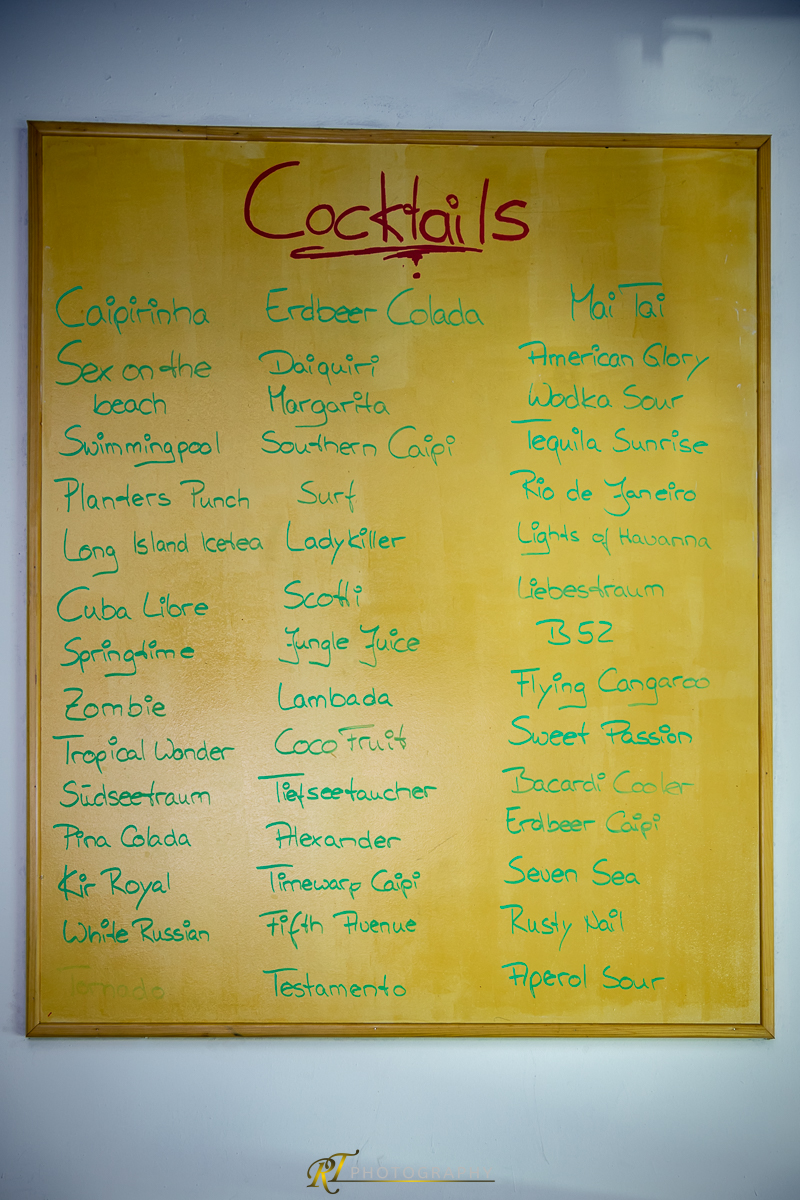 Cocktails
Caipirinha
Sex on the
beach
Swimmingpool
Planters Punch
Long Island Icetea
Cuba Libre
Springtime
Zombie
Tropical Wonder
Südseetraum
Pina Colada
Kir Royal
White Russian
Tornado
Erdbeer Colada
Daiquiri
Margarita
Southern Caipi
Surf
Ladykiller
Scotti
Jungle Juice
Lambada
Coco Fruit
Tiefseetaucher
Alexander
Timewarp Caipi
Fifth Avenue
Testamento
Mai Tai
American Glory
Wodka Sour
Tequila Sunrise
Rio de Janeiro
Lights of Havanna
Liebestraum
B52
Flying Cangaroo
Sweet Passion
Bacardi Cooler
Erdbeer Caipi
Seven Sea
Rusty Nail
Aperol Sour
RT PHOTOGRAPHY